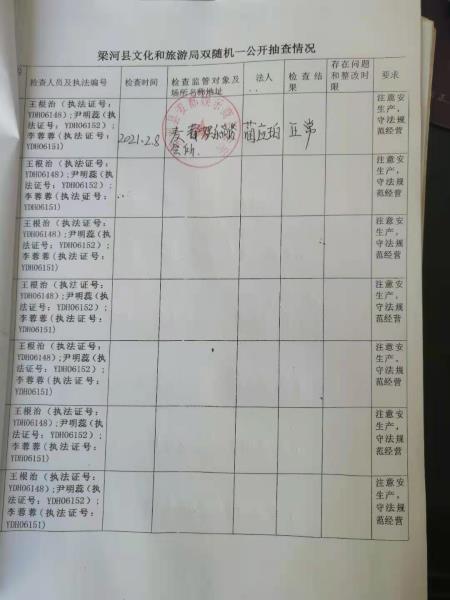 梁河县文化和旅游局双随机一公开抽查情况
检查人员及执法编号
检查时间
检查监管对象及
场所名称地址
法人
检查结
果
存在问题
和整改时
限
要求
王根治（执法证号：
YDH06148）;尹明蕊（执
法证号：YDH06152）;
李蓉蓉（执法证号：
YDH06151）
2021.2.8
正常
注意安
生产，
守法规
范经营
王根治（执法证号：
YDH06148）;尹明蕊（执
法证号：YDH06152）;
李蓉蓉（执法证号：
YDH06151）
注意安
生产，
守法规
范经营
王根治（执法证号：
YDH06148）;尹明蕊（执
法证号：YDH06152）;
李蓉蓉（执法证号：
YDH06151）
注意安
生产，
守法规
范经营
王根治（执法证号：
YDH06148）;尹明蕊（执
法证号：YDH06152）;
李蓉蓉（执法证号：
YDH06151）
注意安
生产，
守法规
范经营
王根治（执法证号：
YDH06148）;尹明蕊（执
法证号：YDH06152）;
李蓉蓉（执法证号：
YDH06151）
注意安
生产，
守法规
范经营
王根治（执法证号：
YDH06148）;尹明蕊（执
法证号：YDH06152）;
李蓉蓉（执法证号：
YDH06151）
注意安
生产，
守法规
范经营
王根治（执法证号：
YDH06148）;尹明蕊（执
法证号：YDH06152）;
李蓉蓉（执法证号：
YDH06151）
注意安
生产，
守法规
范经营